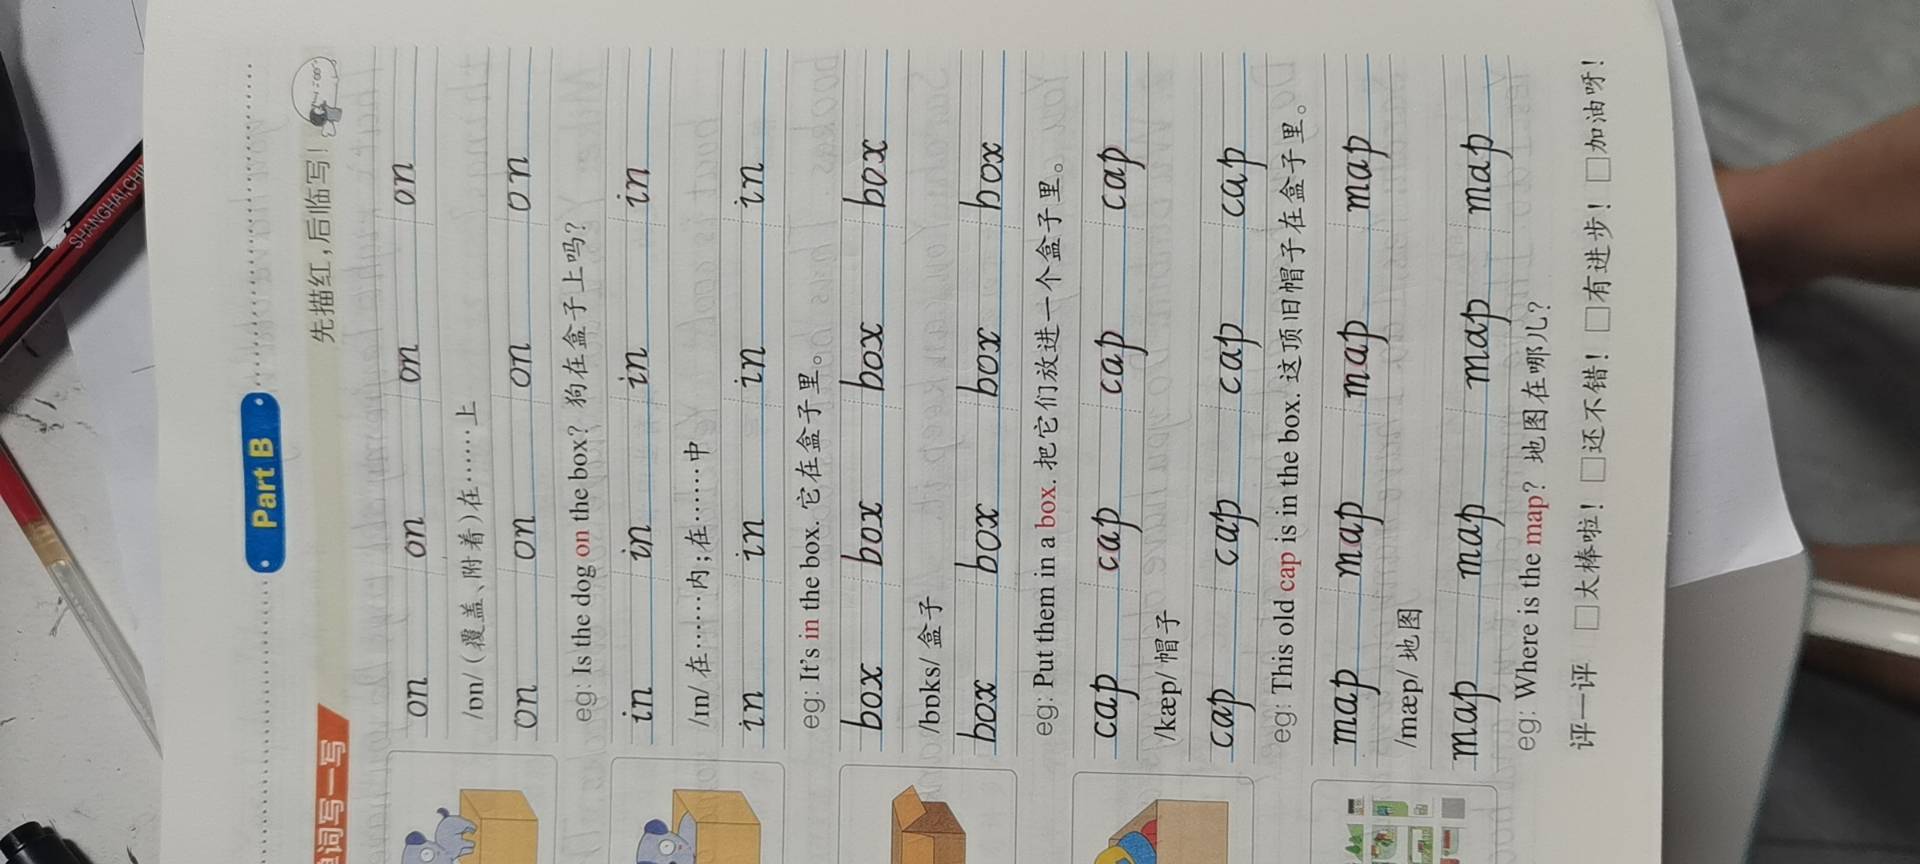 Part B
词写一写
先描红，后临写！
on on on on
/ɒn/（覆盖、附着）在……上
on on on on
eg: Is the dog on the box? 狗在盒子上吗？
in in in in
/ɪn/ 在……内；在……中
in in in in
eg: It's in the box. 它在盒子里。
box box box box
/bɒks/ 盒子
box box box box
eg: Put them in a box. 把它们放进一个盒子里。
cap cap cap cap
/kæp/ 帽子
cap cap cap cap
eg: This old cap is in the box. 这顶旧帽子在盒子里。
map map map map
/mæp/ 地图
map map map map
eg: Where is the map? 地图在哪儿？
评一评 □太棒啦！ □还不错！ □有进步！ □加油呀！
SHANGHAI,CHI